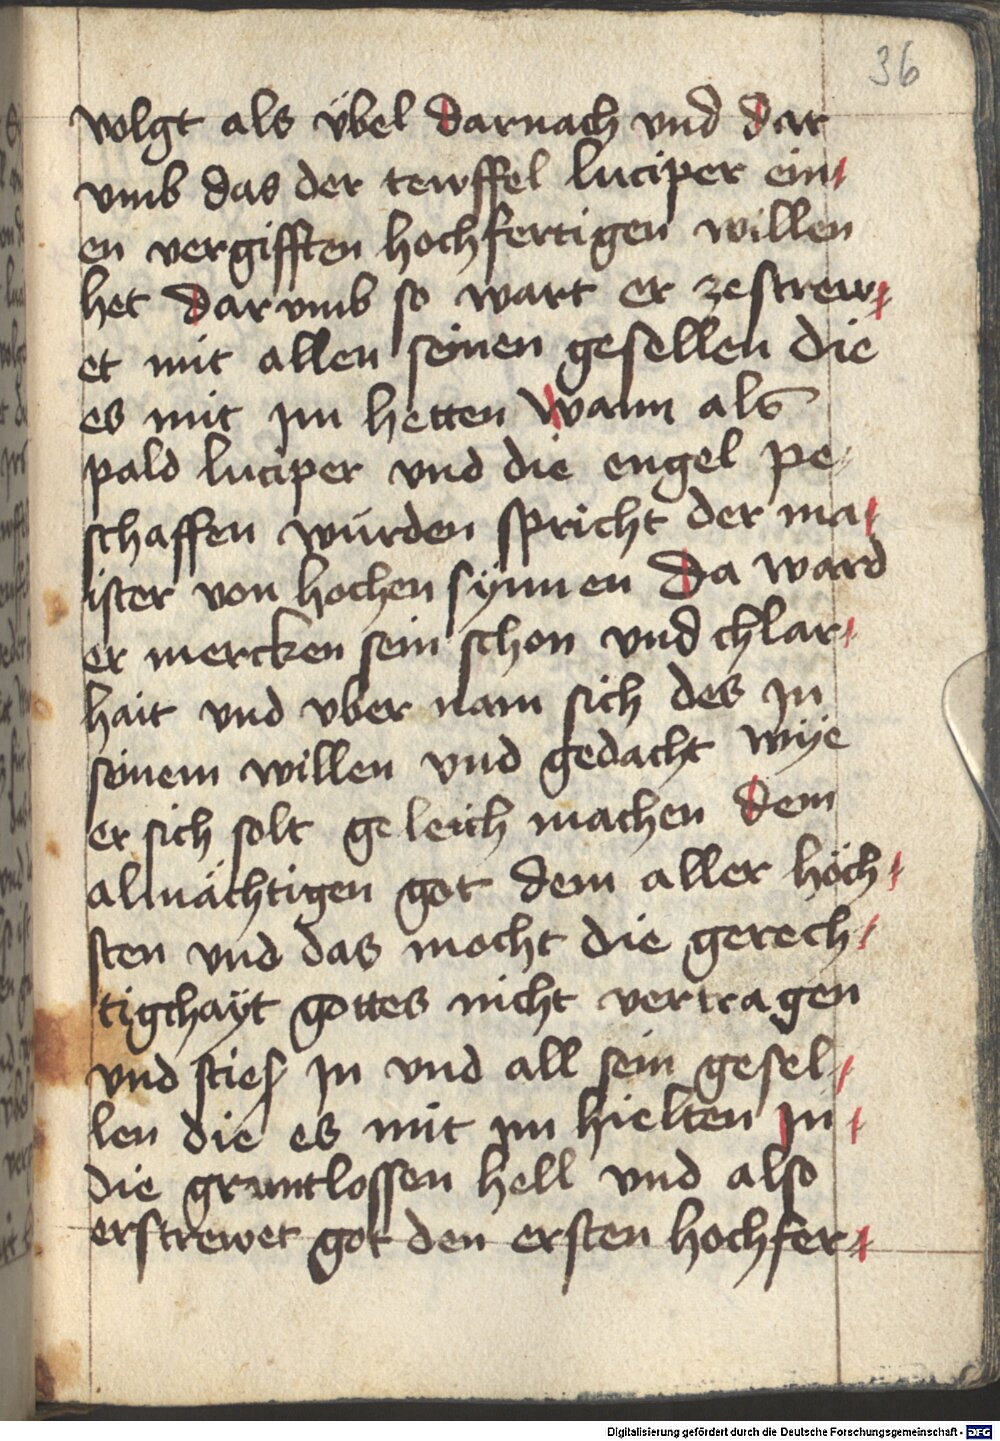 36
volgt als übel darnach vnd dar
vmb das der tewffel luciper ein/
en vergifften hochfertigen willen
het darvmb so wart er zestrew/
et mit allen seinen gesellen die
es mit jm hetten Wann als
pald luciper vnd die engel pe/
schaffen würden spricht der ma/
ister von hochen synnen Da ward
er mercken sein schon vnd chlar/
hait vnd vber nam sich des jn
seinem willen vnd gedacht wÿe
er sich solt geleich machen dem
almächtigen got dem aller höch/
sten vnd das mocht die gerech/
tigchaÿt gottes nicht vertragen
vnd sties jn vnd all sein gesel/
len die es mit jm hielten jn/
die gruntlossen hell vnd also
erstrewet got den ersten hochfer/
Digitalisierung gefördert durch die Deutsche Forschungsgemeinschaft - DFG